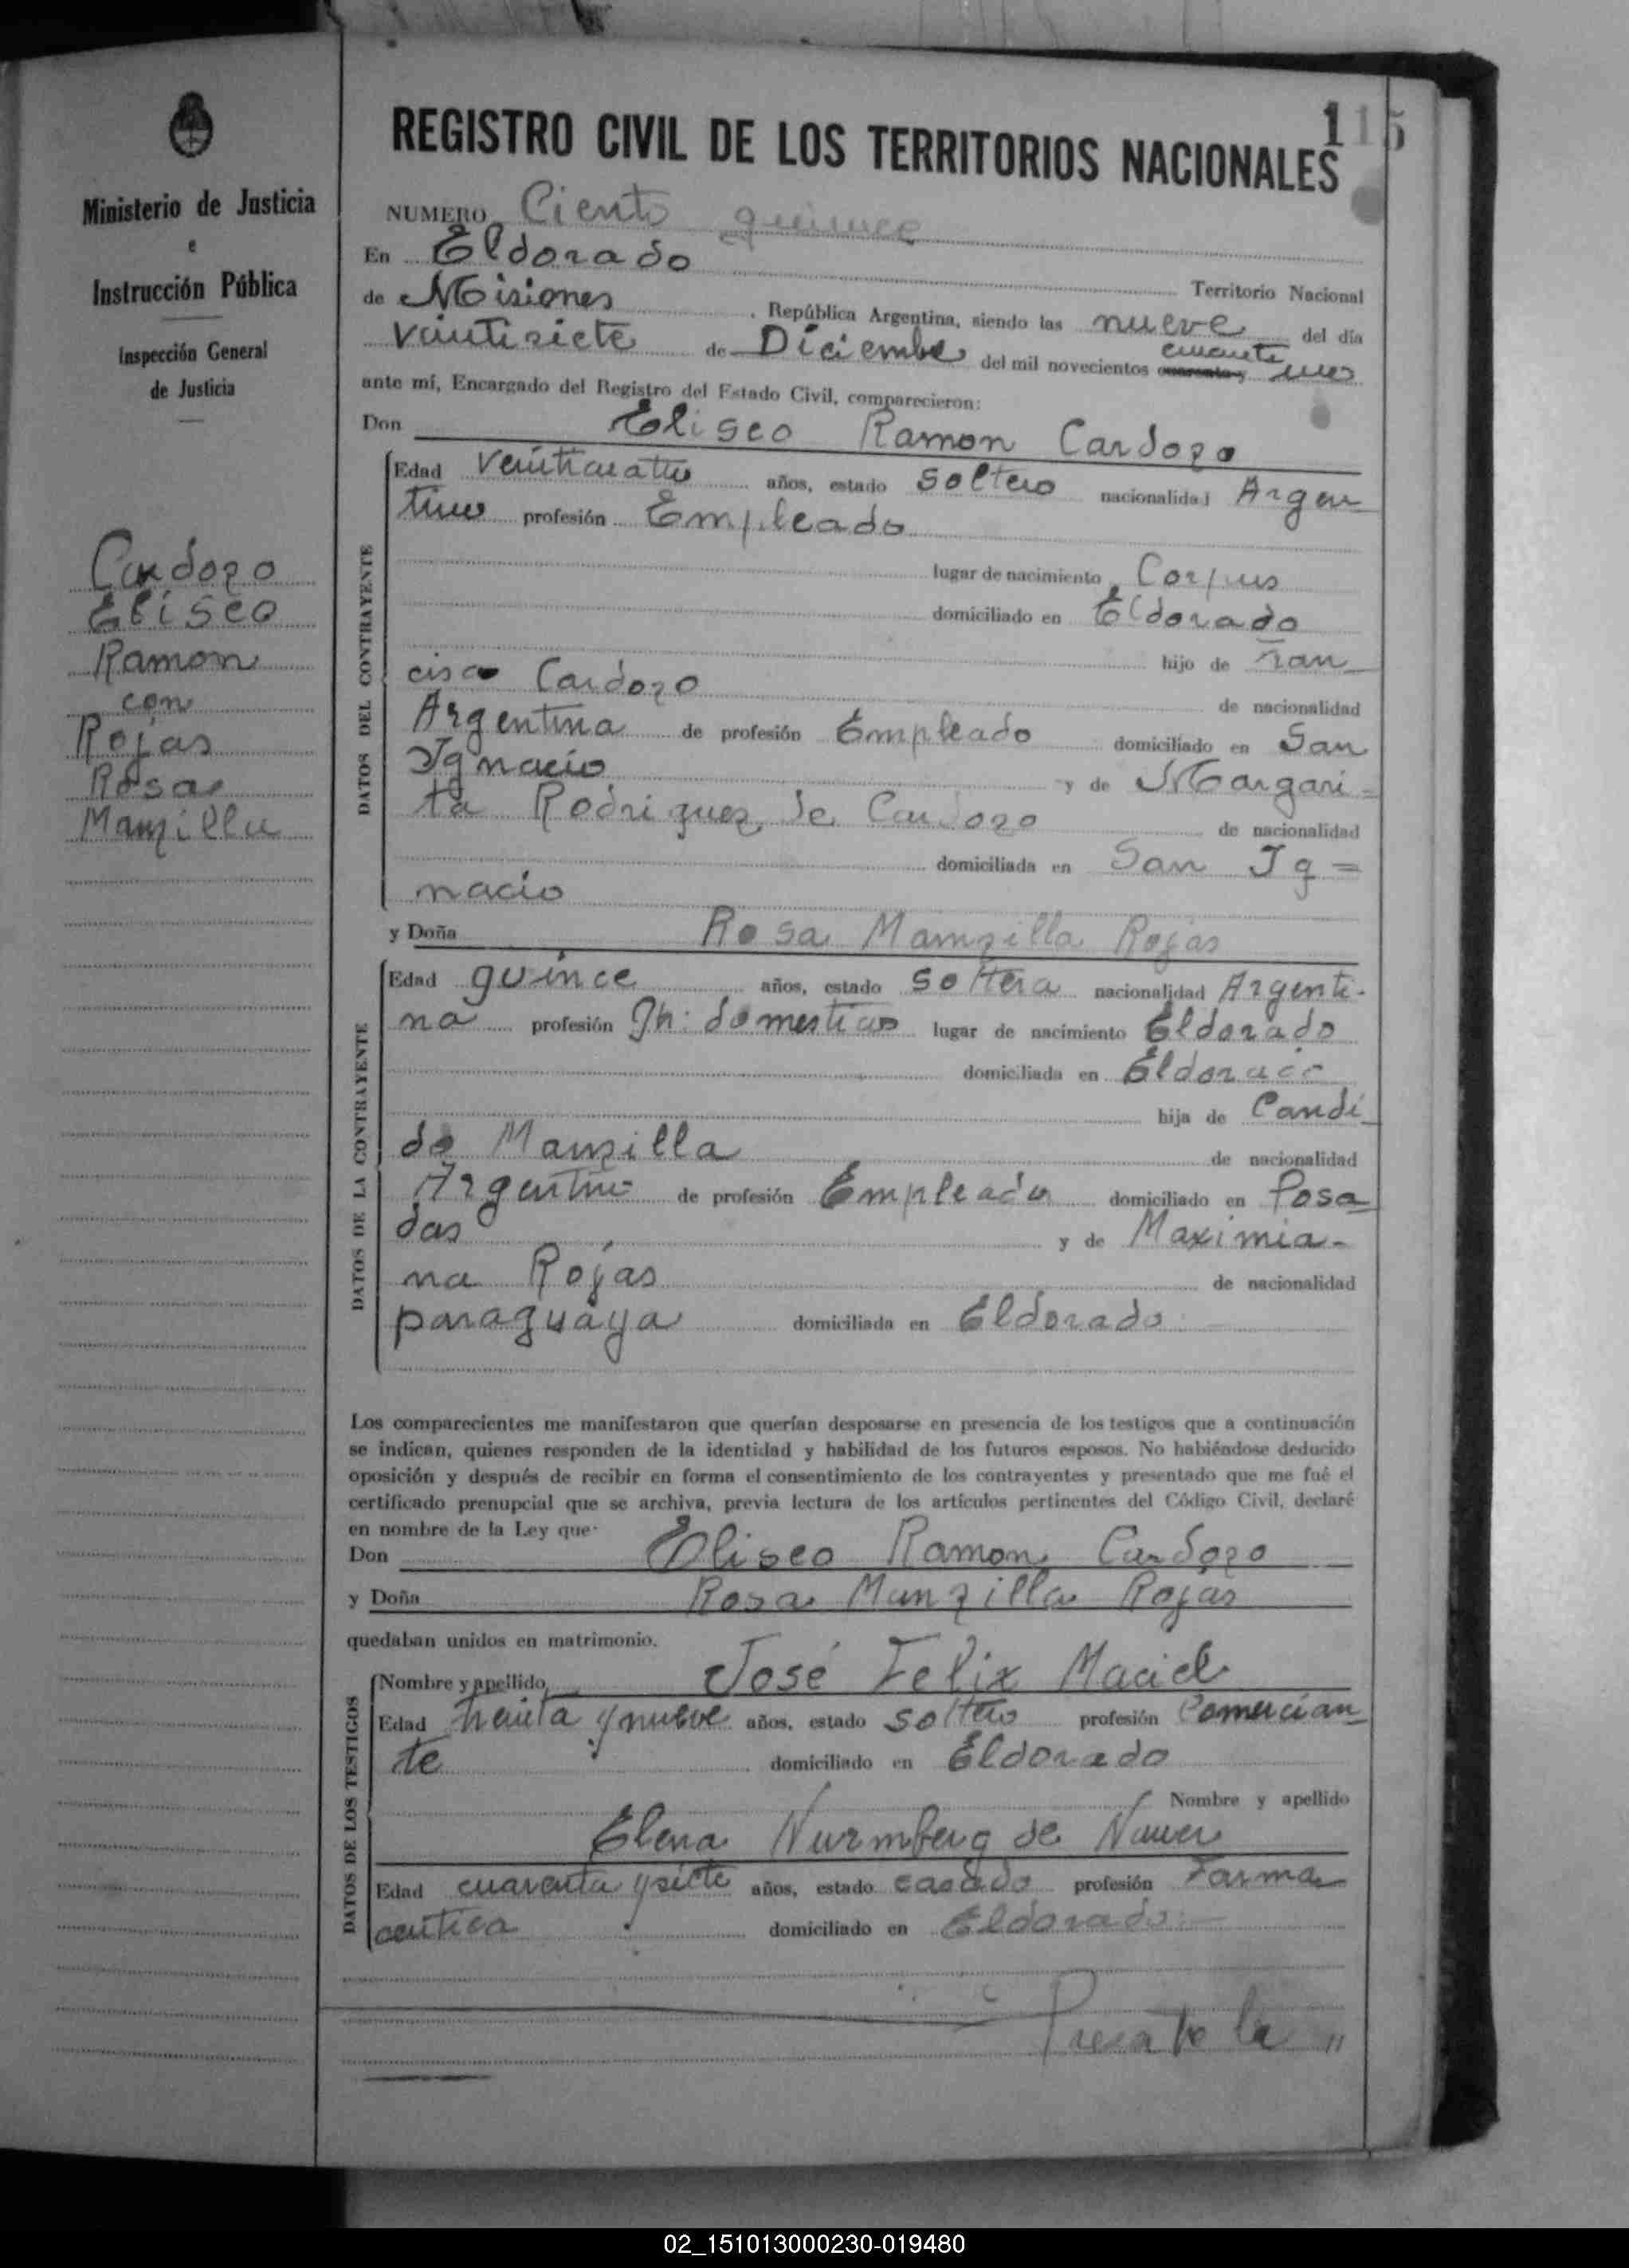 Ministerio de Justicia
e
Instrucción Pública
Inspección General
de Justicia
Cardozo
Eliseo
Ramon
con
Rojas
Rosa
Manzilla
115
REGISTRO CIVIL DE LOS TERRITORIOS NACIONALES
NUMERO Ciento quince
En Eldorado Territorio Nacional
de Misiones, República Argentina, siendo las nueve del día
veintisiete de Diciembre del mil novecientos cuarenta y uno
ante mí, Encargado del Registro del Estado Civil, comparecieron:
Don Eliseo Ramon Cardozo
DATOS DEL CONTRAYENTE
Edad veinticuatro años, estado soltero nacionalidad Argen
tino profesión Empleado
lugar de nacimiento Corpus
domiciliado en Eldorado
hijo de Fran
cisco Cardozo de nacionalidad
Argentina de profesión Empleado domiciliado en San
Ignacio y de Margari=
ta Rodriguez de Cardozo de nacionalidad
domiciliada en San Ig=
nacio
y Doña Rosa Manzilla Rojas
DATOS DE LA CONTRAYENTE
Edad quince años, estado soltera nacionalidad Argenti-
na profesión domesticos lugar de nacimiento Eldorado
domiciliada en Eldorado
hija de Candi
do Manzilla de nacionalidad
Argentino de profesión Empleado domiciliado en Posa
das y de Maximia-
na Rojas de nacionalidad
paraguaya domiciliada en Eldorado
Los comparecientes me manifestaron que querían desposarse en presencia de los testigos que a continuación
se indican, quienes responden de la identidad y habilidad de los futuros esposos. No habiéndose deducido
oposición y después de recibir en forma el consentimiento de los contrayentes y presentado que me fué el
certificado prenupcial que se archiva, previa lectura de los artículos pertinentes del Código Civil, declaré
en nombre de la Ley que
Don Eliseo Ramon Cardozo
y Doña Rosa Manzilla Rojas
quedaban unidos en matrimonio.
DATOS DE LOS TESTIGOS
Nombre y apellido José Felix Maciel
Edad treinta y nueve años, estado soltero profesión Comercian
te domiciliado en Eldorado
Nombre y apellido
Elena Nurmberg de
Edad cuarenta y siete años, estado casado profesión Farma
ceutica domiciliado en Eldorado
la "
02_151013000230-019480